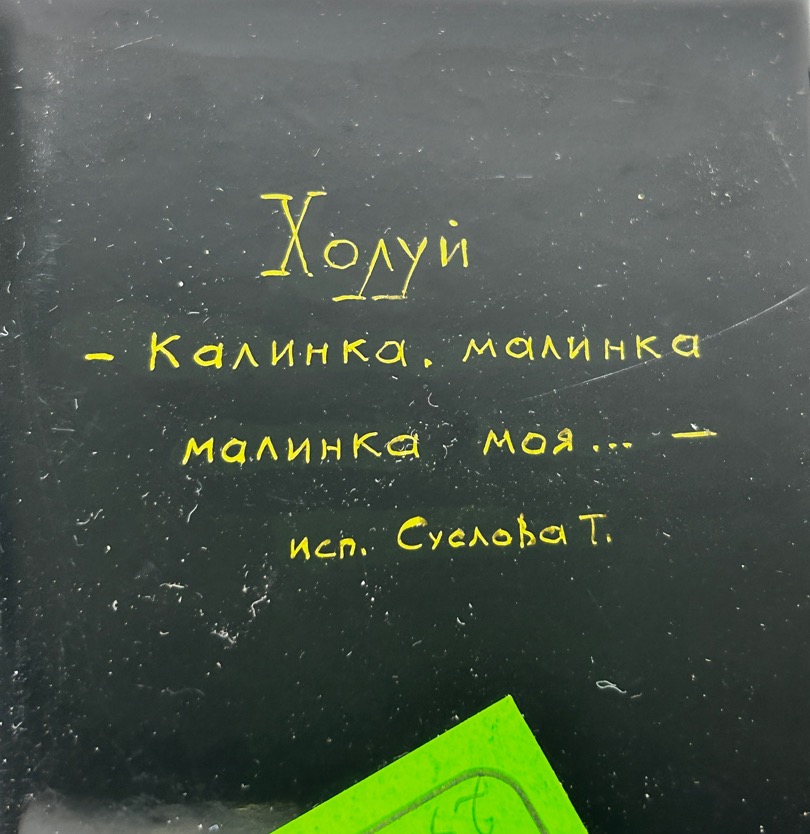 Холуй
- Калинка, малинка
малинка моя... -
исп. Суслова Т.